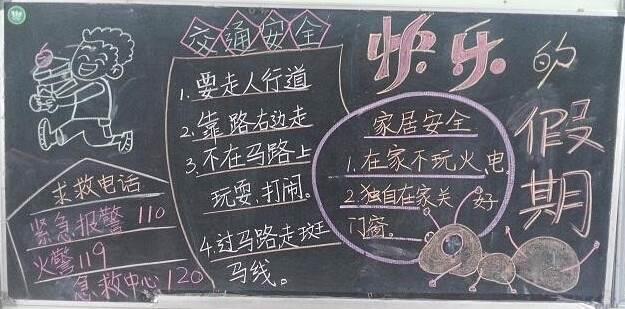 快乐的假期
交通安全
1.要走人行道
2.靠路右边走
3.不在马路上
玩耍,打闹。
4.过马路走斑
马线。
家居安全
1.在家不玩火、电。
2.独自在家关好
门窗。
求救电话
紧急报警 110
火警119
急救中心120